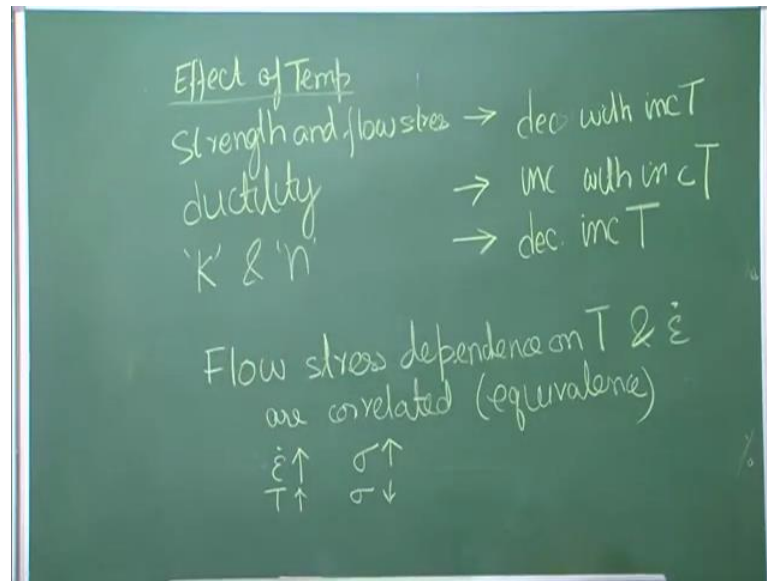 Effect of Temp
Strength and flow stres → dec with inc T
ductility → inc with inc T
'K' & 'n' → dec. inc T
Flow stress dependence on T & ε̇
are correlated (equivalence)
ε̇↑ σ↑
T↑ σ↓